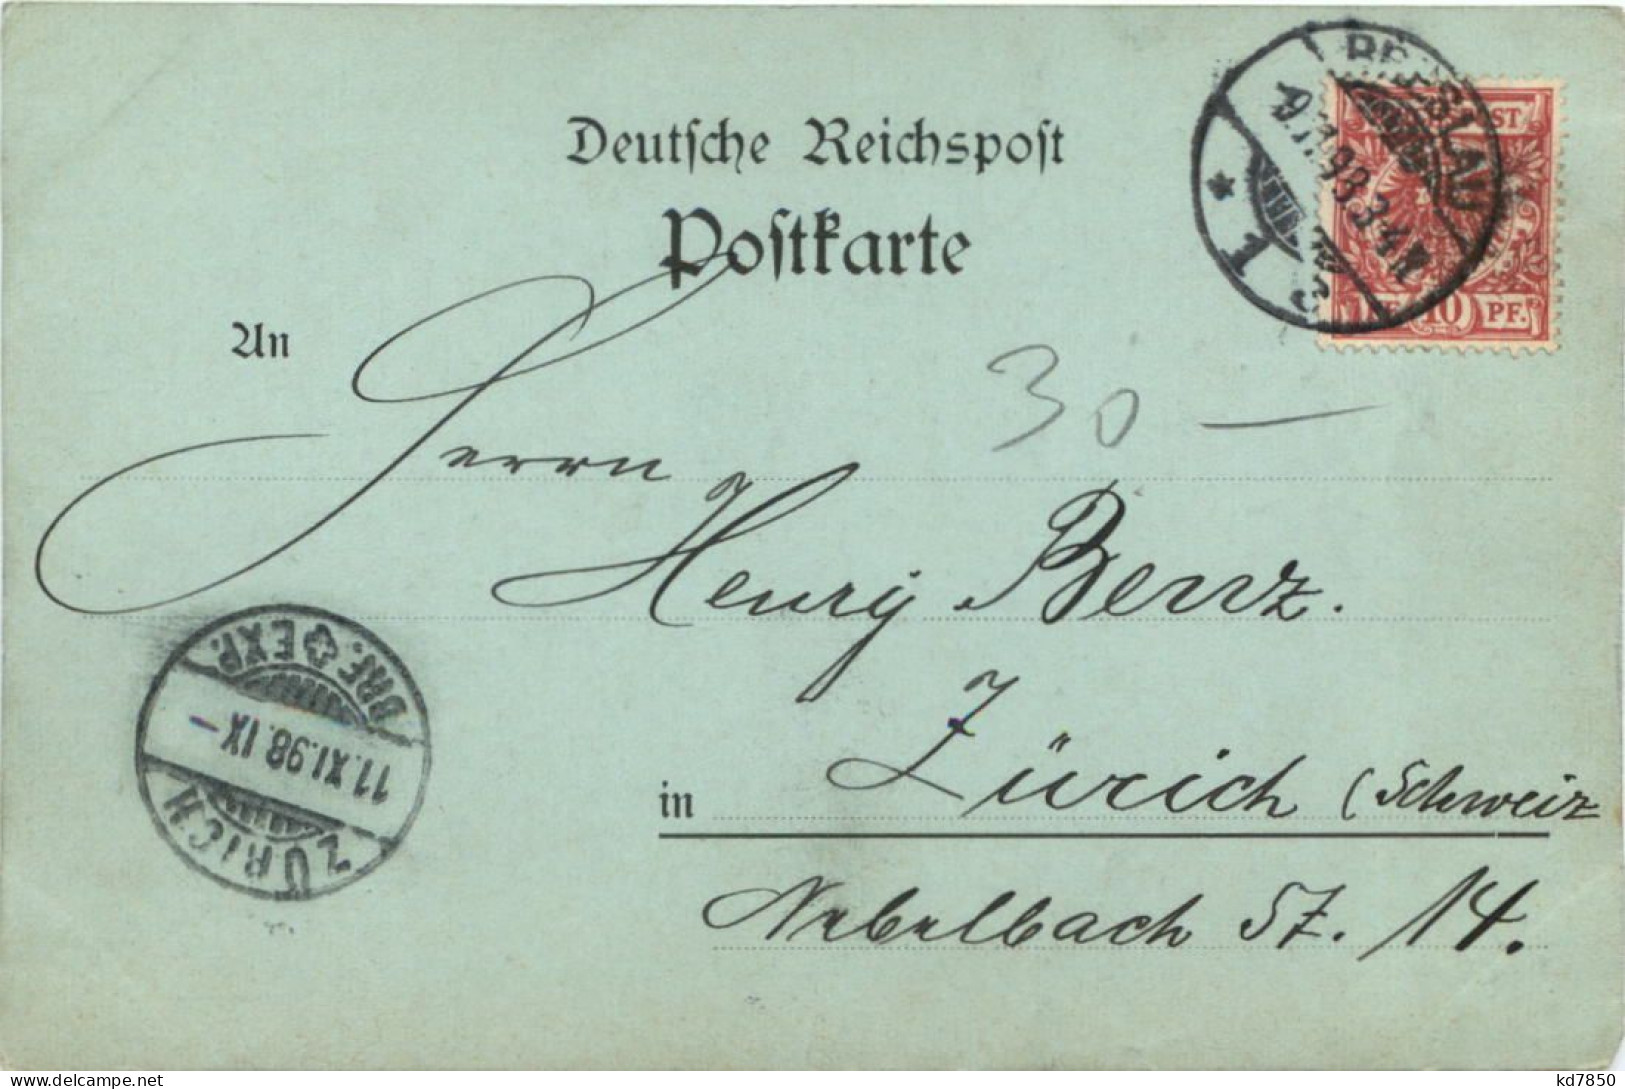 Deutsche Reichspost
Postkarte
BRESLAU
9.11.98. 3-4 N
* 1 c
ST
10 PF.
An
30 —
Herrn
Henry Benz.
in Zürich (Schweiz
Nebelbach St. 14.
BRF. EXP.
11.XI.98.IX –
ZÜRICH
kd7850